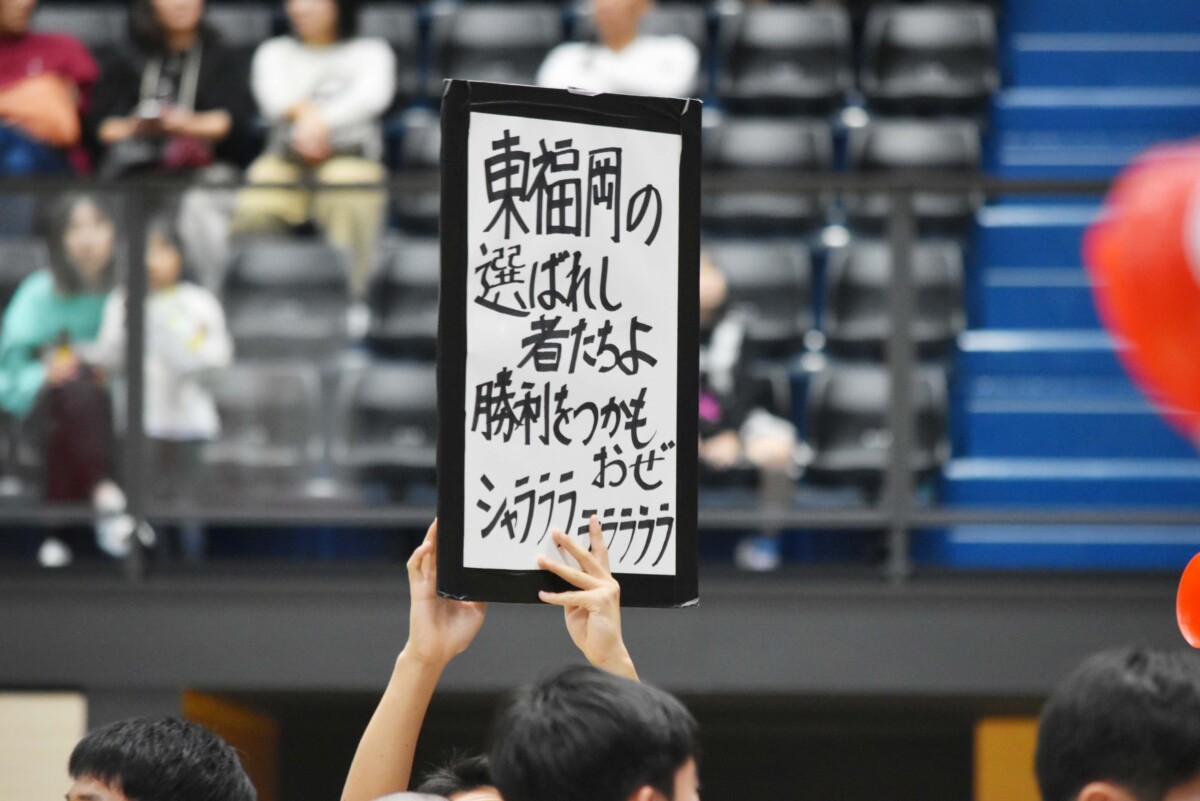 東福岡の
選ばれし
者たちよ
勝利をつかも
おぜ
シャラララ
ララララ